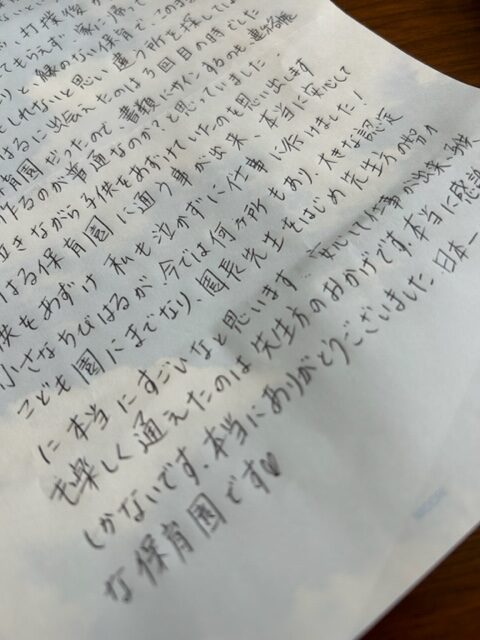 打撲後
てもらえず 家に帰
りと縁のない保育 このま
もしれないと思い違う所を探して
はるに出会えたのは3回目の時でした
保育園だったので、書類にサインするのも連絡帳
作るのが普通なのか?と思っていました
泣きながら子供をあずけていたのを思い出します
はる保育園に通う事が出来、本当に安心して
供をあずけ 私も泣かずに仕事に行けました!
小さなちびはるが、今では何ヶ所もあり、大きな認定
こども園にまでなり、園長先生をはじめ先生方の努力
に本当にすごいなと思います 安心した事が出来、子供
も楽しく通えたのは先生方のおかげです。本当に感謝
しかないです。本当にありがとうございました 日本一
な保育園です♥